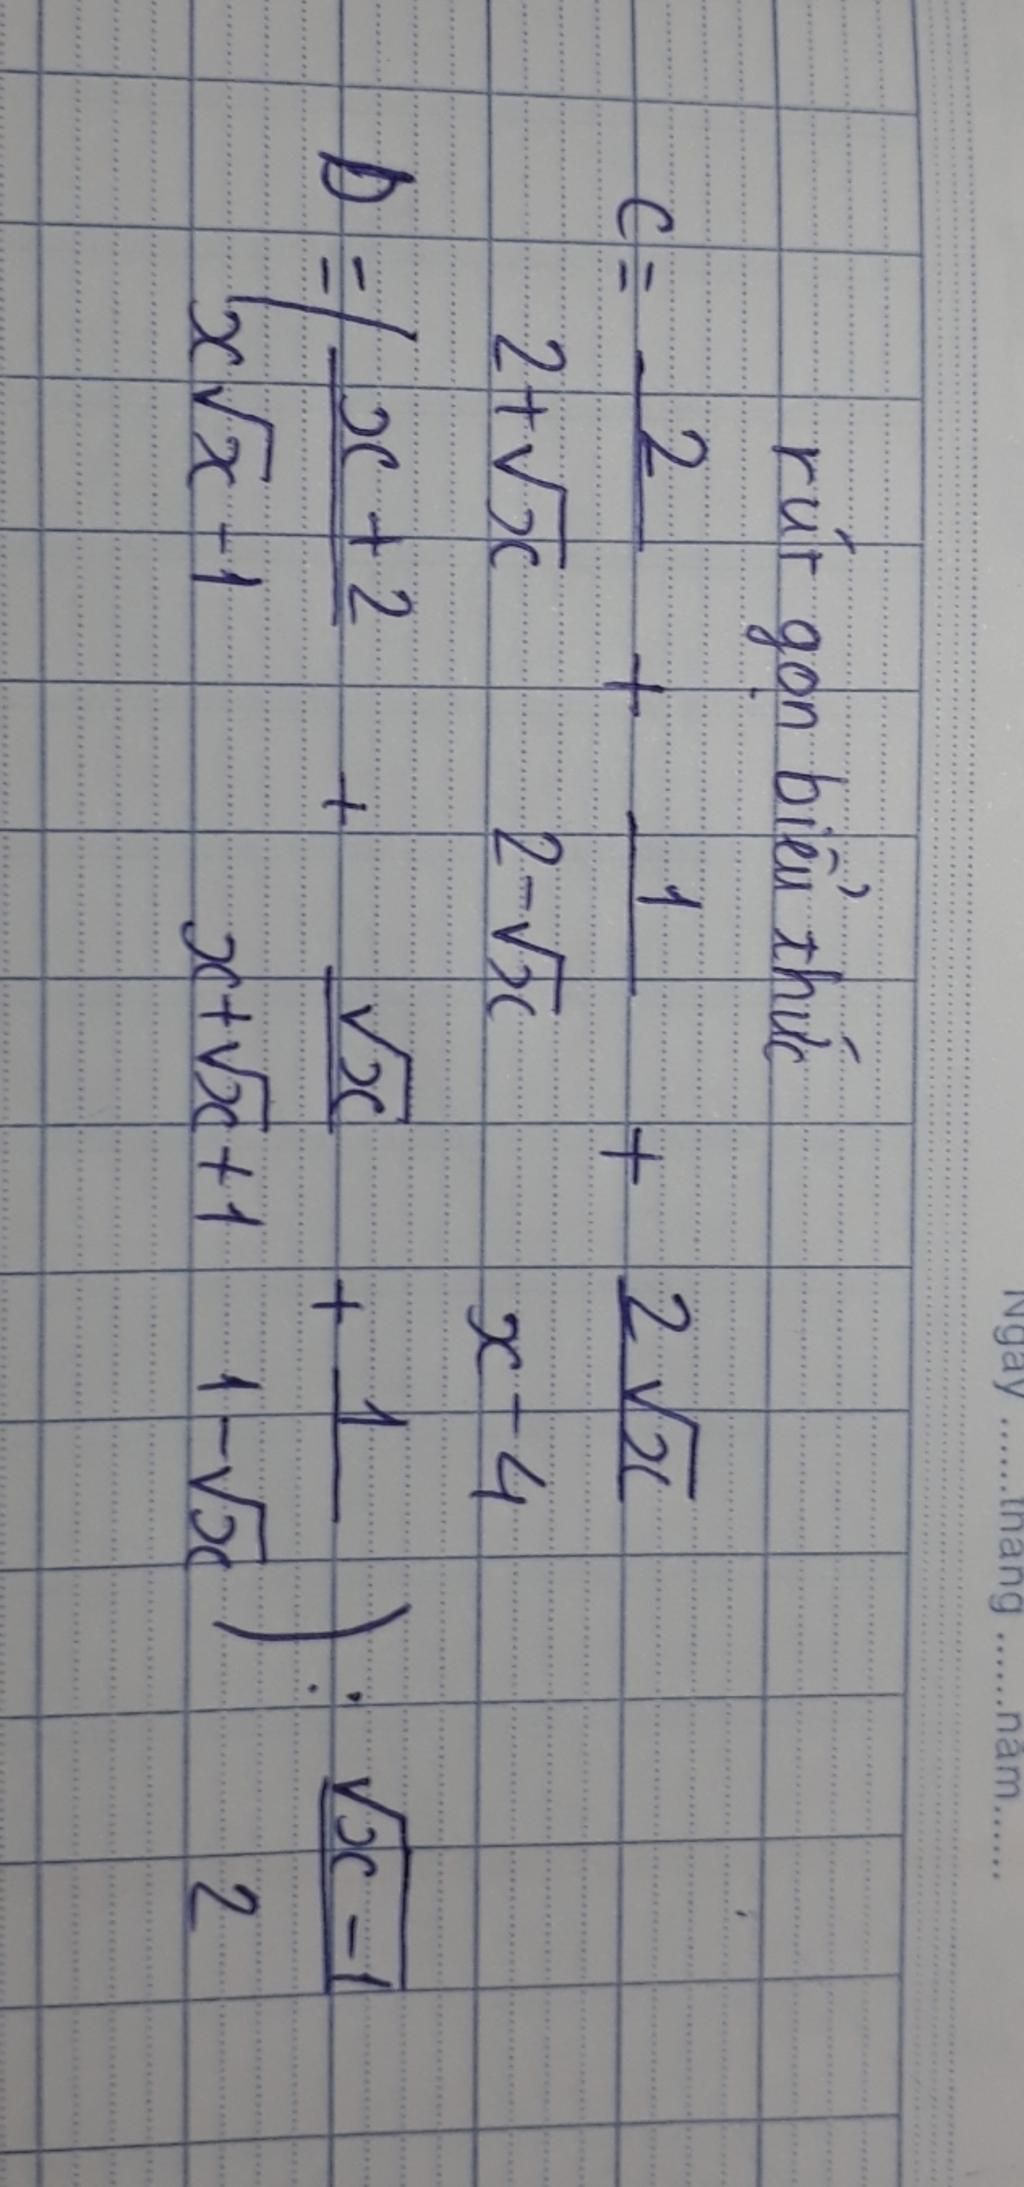 Ngày ......tháng ......năm......
rút gọn biểu thức
C = 2/(2+√x) + 1/(2-√x) + 2√x/(x-4)
D = ( (x+2)/(x√x-1) + √x/(x+√x+1) + 1/(1-√x) ) : √(x-1)/2